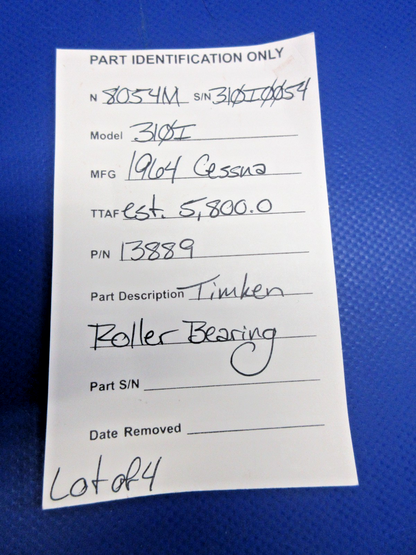 PART IDENTIFICATION ONLY
N 8054M S/N 310I0054
Model 310I
MFG 1964 Cessna
TTAF est. 5,800.0
P/N 13889
Part Description Timken
Roller Bearing
Part S/N
Date Removed
Lot of 4